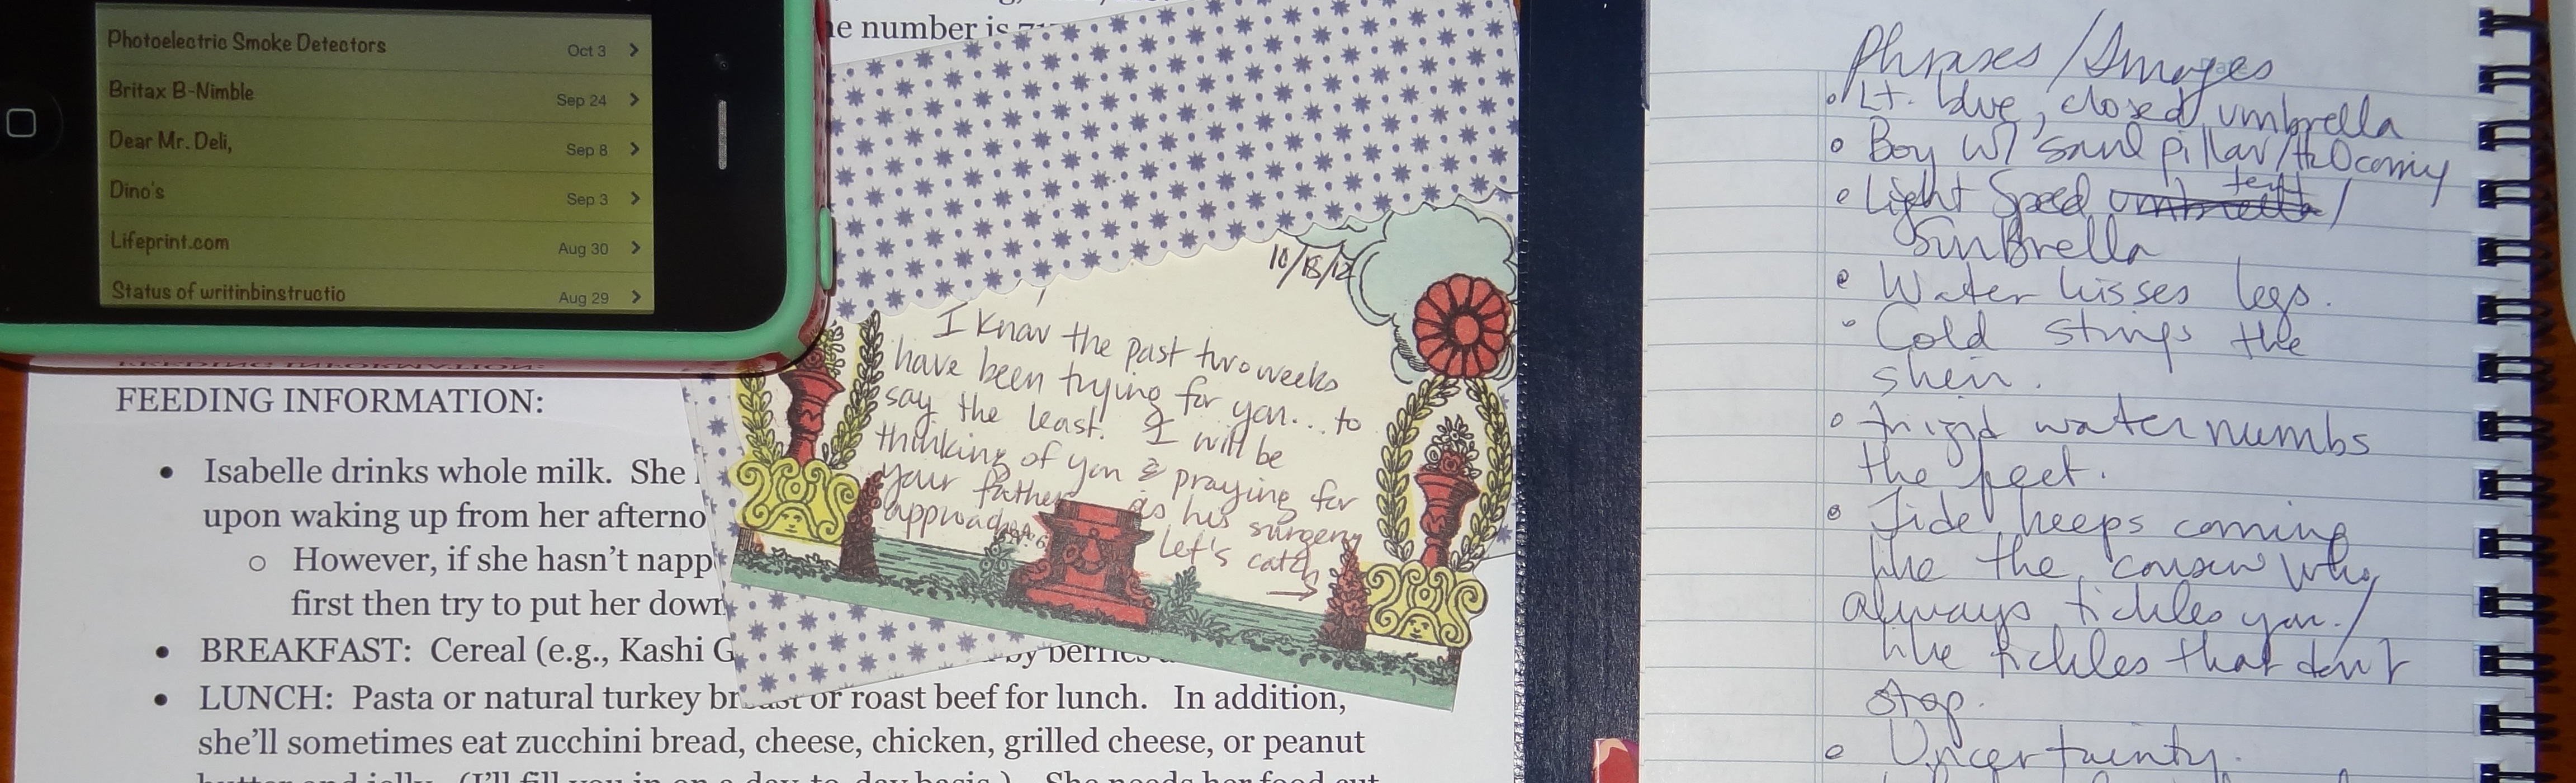 Photoelectric Smoke Detectors Oct 3
Britax B-Nimble Sep 24
Dear Mr. Deli, Sep 8
Dino's Sep 3
Lifeprint.com Aug 30
Status of writinbinstructio Aug 29
number is
FEEDING INFORMATION:
• Isabelle drinks whole milk. She
upon waking up from her afterno
o However, if she hasn't napp
first then try to put her down
• BREAKFAST: Cereal (e.g., Kashi G
by berries
• LUNCH: Pasta or natural turkey or roast beef for lunch. In addition,
she'll sometimes eat zucchini bread, cheese, chicken, grilled cheese, or peanut
butter and jelly. (I'll fill you in on a day-to-day basis.) She needs her food cut
10/18/12
I know the past two weeks
have been trying for you... to
say the least! I will be
thinking of you & praying for
your father as his surgery
approaches.
Let's catch →
Phrases/Images
• Lt. blue, closed umbrella
• Boy w/ sand pillar/H2O coming
• Light Speed umbrella tent/
Sunbrella
• Water kisses legs.
• Cold stings the
skin.
• Frigid water numbs
the feet.
• Tide keeps coming
like the cousin who
always tickles you./
like tickles that don't
stop.
• Uncertainty.